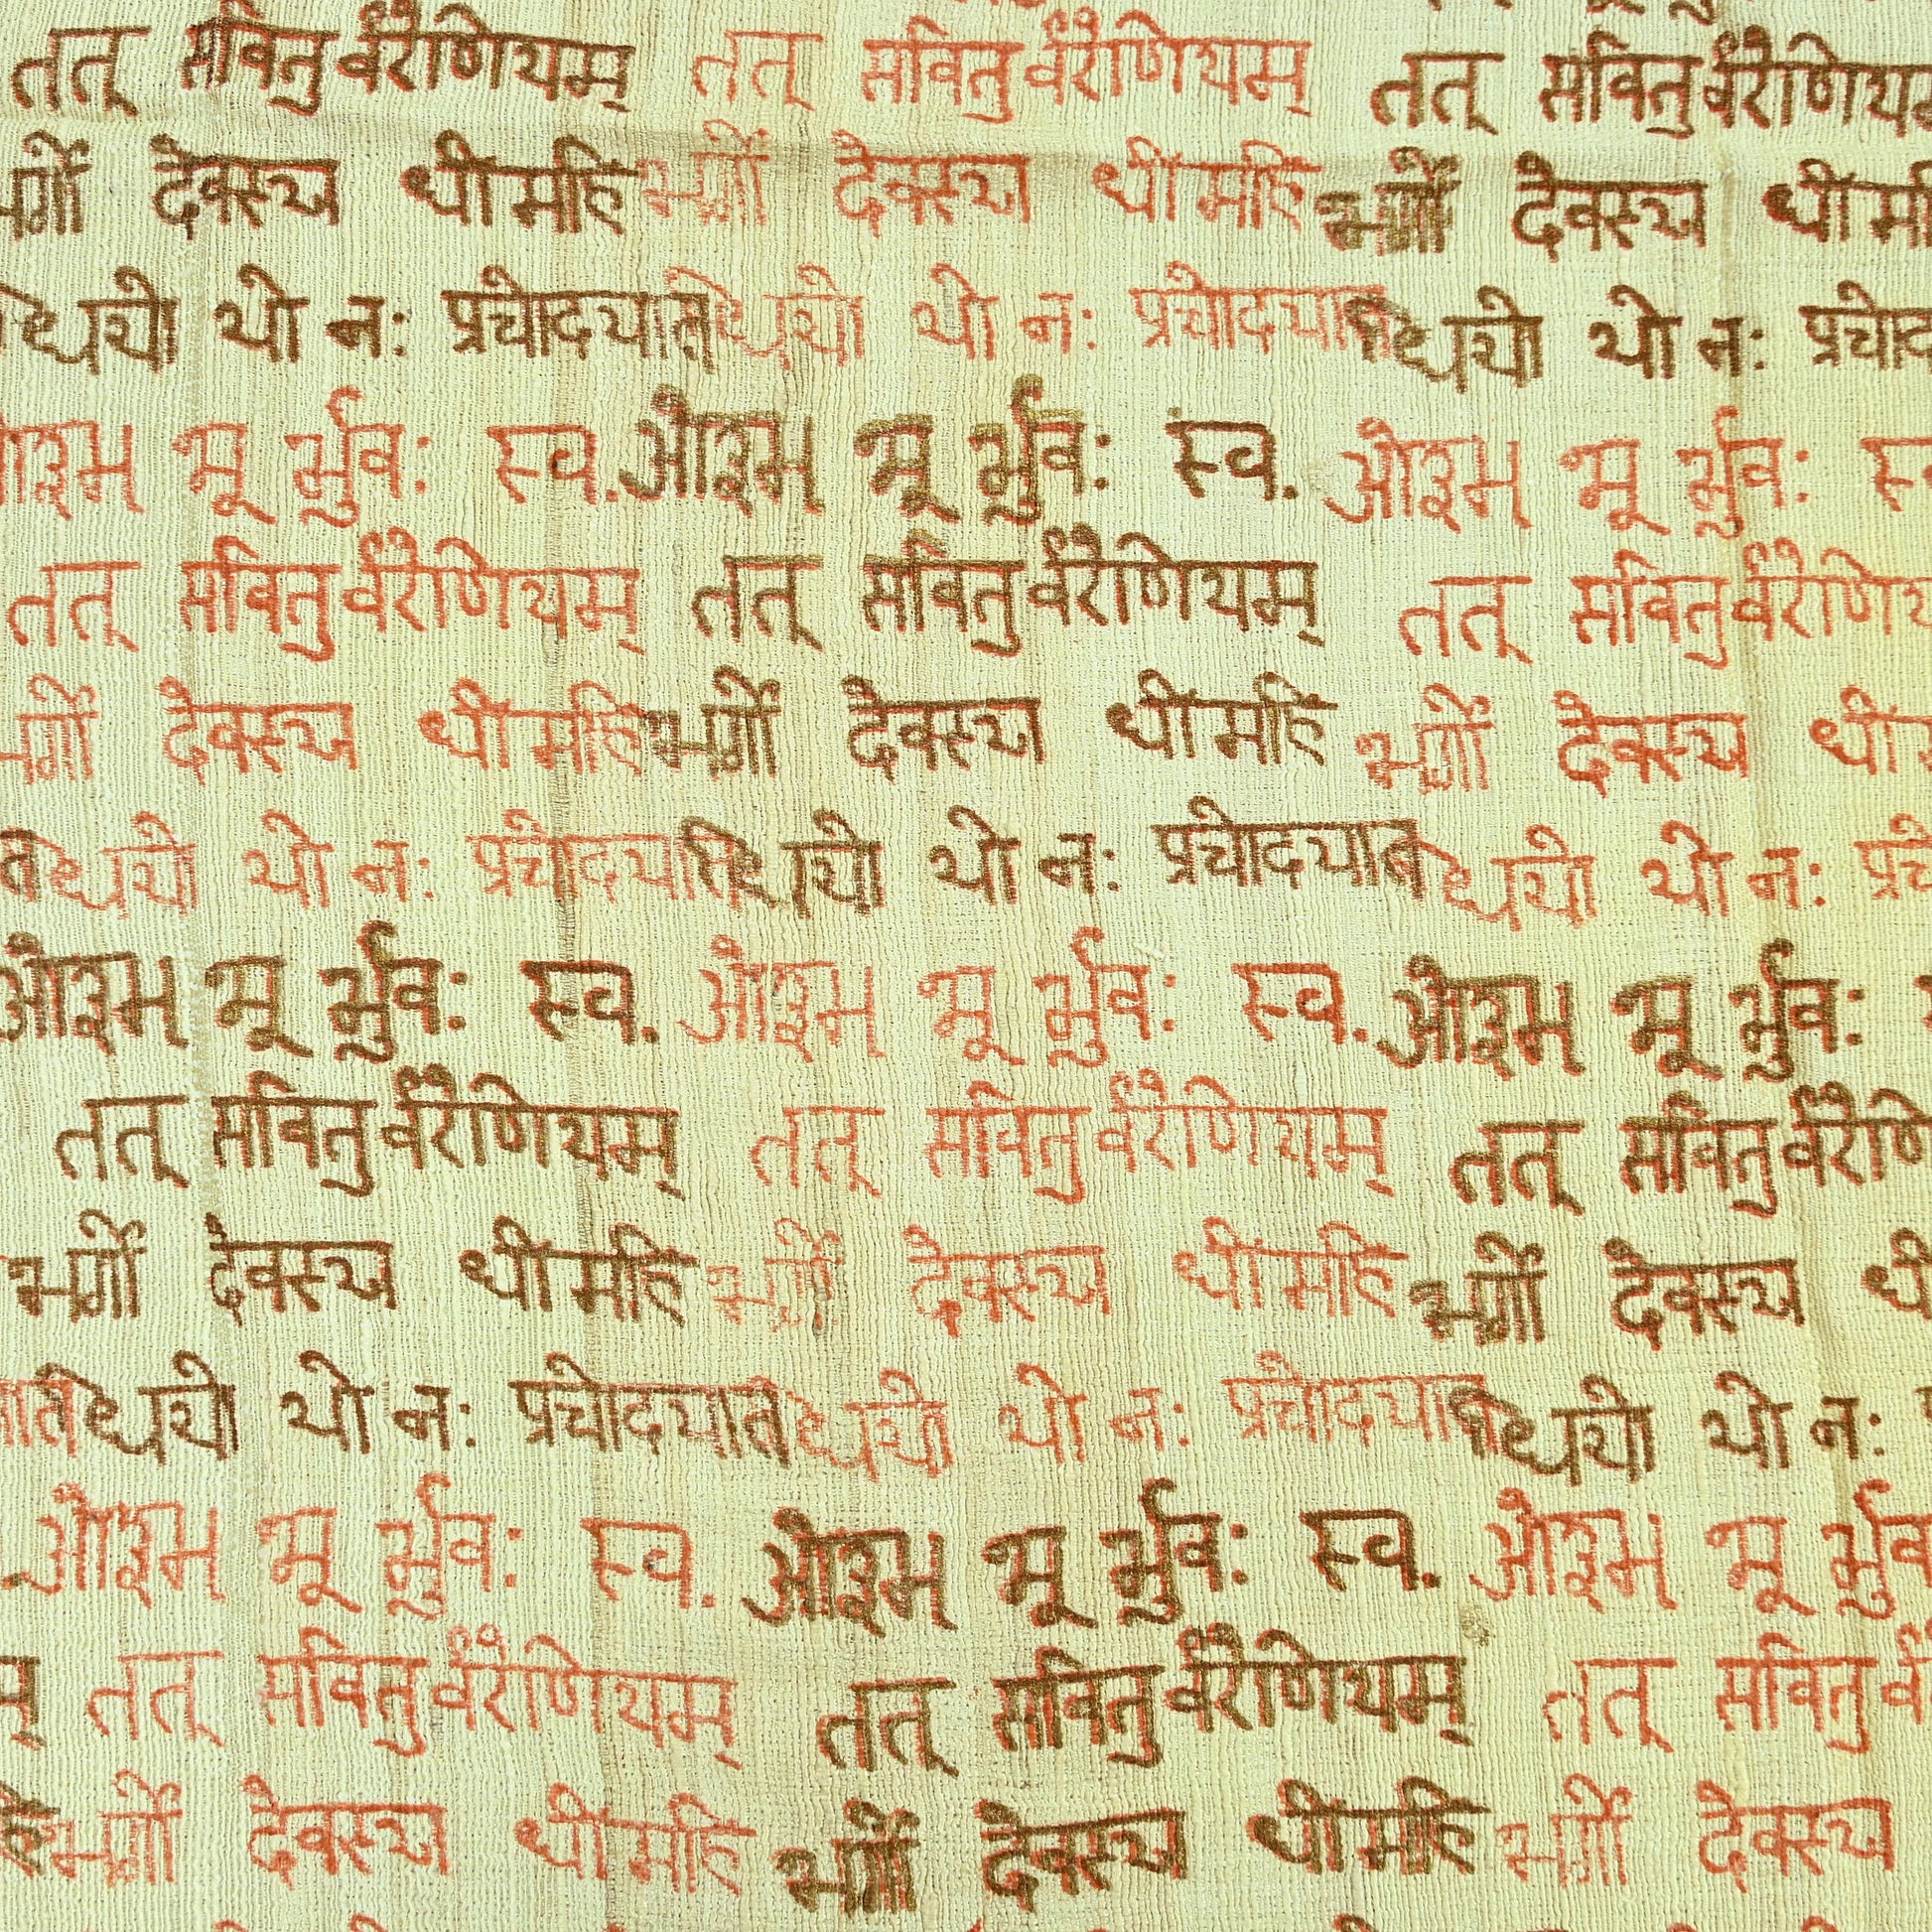 तत् सवितुर्वरैणियम् तत् सवितुर्वरैणियम् तत् सवितुर्वरैणिय
भर्गो देवस्य धीमहि भर्गो देवस्य धीमहि भर्गो देवस्य धीम
धियो यो नः प्रचोदयात धियो यो नः प्रचोदयात धियो यो नः प्रचोद
ओ३म भू र्भुवः स्व. ओ३म भू र्भुवः स्व. ओ३म भू र्भुवः स्
तत् सवितुर्वरैणियम् तत् सवितुर्वरैणियम् तत् सवितुर्वरैणिय
भर्गो देवस्य धीमहि भर्गो देवस्य धीमहि भर्गो देवस्य धी
त धियो यो नः प्रचोदयात धियो यो नः प्रचोदयात धियो यो नः प्रचे
ओ३म भू र्भुवः स्व. ओ३म भू र्भुवः स्व. ओ३म भू र्भुवः
तत् सवितुर्वरैणियम् तत् सवितुर्वरैणियम् तत् सवितुर्वरैणि
भर्गो देवस्य धीमहि भर्गो देवस्य धीमहि भर्गो देवस्य धी
ात धियो यो नः प्रचोदयात धियो यो नः प्रचोदयात धियो यो नः
ओ३म भू र्भुवः स्व. ओ३म भू र्भुवः स्व. ओ३म भू र्भुव
म् तत् सवितुर्वरैणियम् तत् सवितुर्वरैणियम् तत् सवितुर्व
हि भर्गो देवस्य धीमहि भर्गो देवस्य धीमहि भर्गो देवस्य